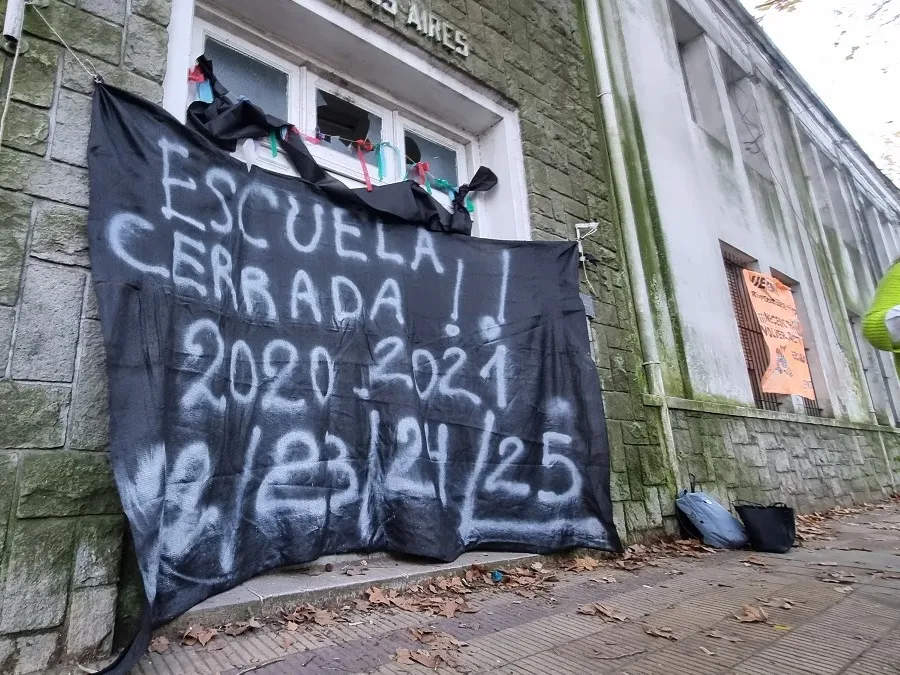 S AIRES
ESCUELA
CERRADA !!
2020 2021
/22/23/24/25
VOLVER